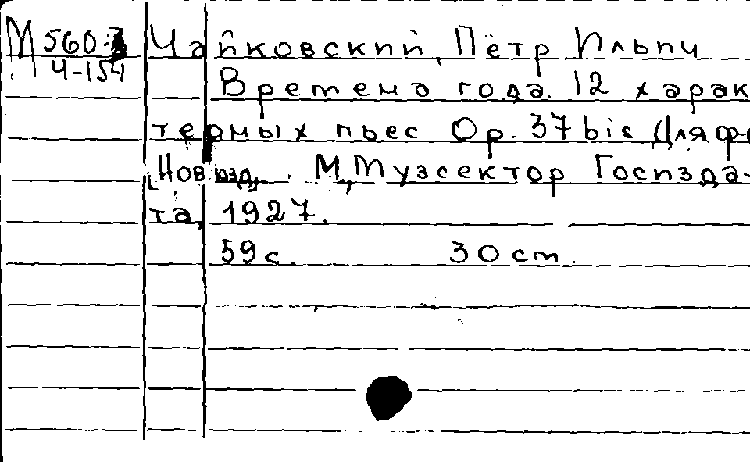 М 560.3
Ч-154
Чайковский, Пётр Ильич
Времена года. 12 харак
терных пьес Ор. 37 bis Для ф
[Нов изд]. М, Музсектор Госизда-
та, 1927.
59 с. 30 cm.